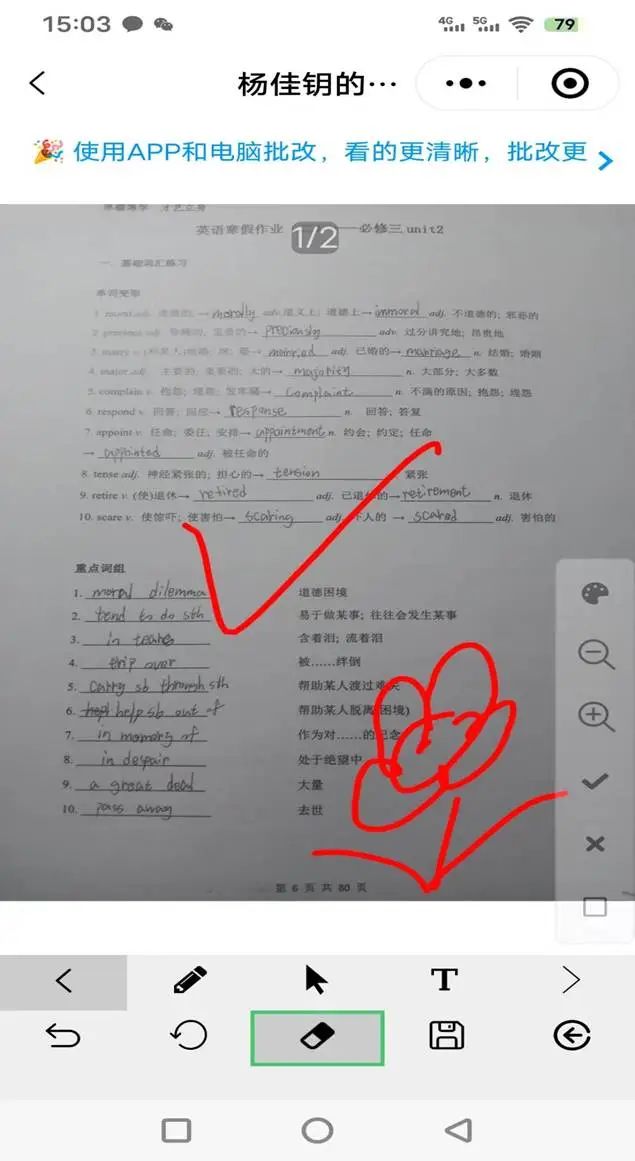 15:03
4G 5G 79
杨佳钥的…
使用APP和电脑批改，看的更清晰，批改更
英语寒假作业 1/2 必修三 unit2
一 基础词汇练习
单词变形
1. moral adj. → morally adv. 道义上; 道德上→ immoral adj. 不道德的; 邪恶的
2. precious adj. 珍稀的; 宝贵的→ preciously adv. 过分讲究地; 昂贵地
3. marry v. → married adj. 已婚的→ marriage n. 结婚; 婚姻
4. major adj. 主要的; 重要的; 大的→ majority n. 大部分; 大多数
5. complain v. 抱怨; 埋怨; 发牢骚→ Complaint n. 不满的原因; 抱怨; 埋怨
6. respond v. 回答; 回应→ response n. 回答; 答复
7. appoint v. 任命; 委任; 安排→ appointment n. 约会; 约定; 任命
→ appointed adj. 被任命的
8. tense adj. 神经紧张的; 担心的→ tension 紧张
9. retire v. (使)退休→ retired adj. 已退休的→ retirement n. 退休
10. scare v. 使惊吓; 使害怕→ scaring adj. 人的 → scared adj. 害怕的
重点词组
1. moral dilemma 道德困境
2. tend to do sth 易于做某事; 往往会发生某事
3. in 含着泪; 流着泪
4. trip over 被……绊倒
5. carry sb through sth 帮助某人渡过难关
6. help sb out of 帮助某人脱离(困境)
7. in memory of 作为对……的纪念
8. in despair 处于绝望中
9. a great dead 大量
10. pass away 去世
第 6 页 共 80 页
T